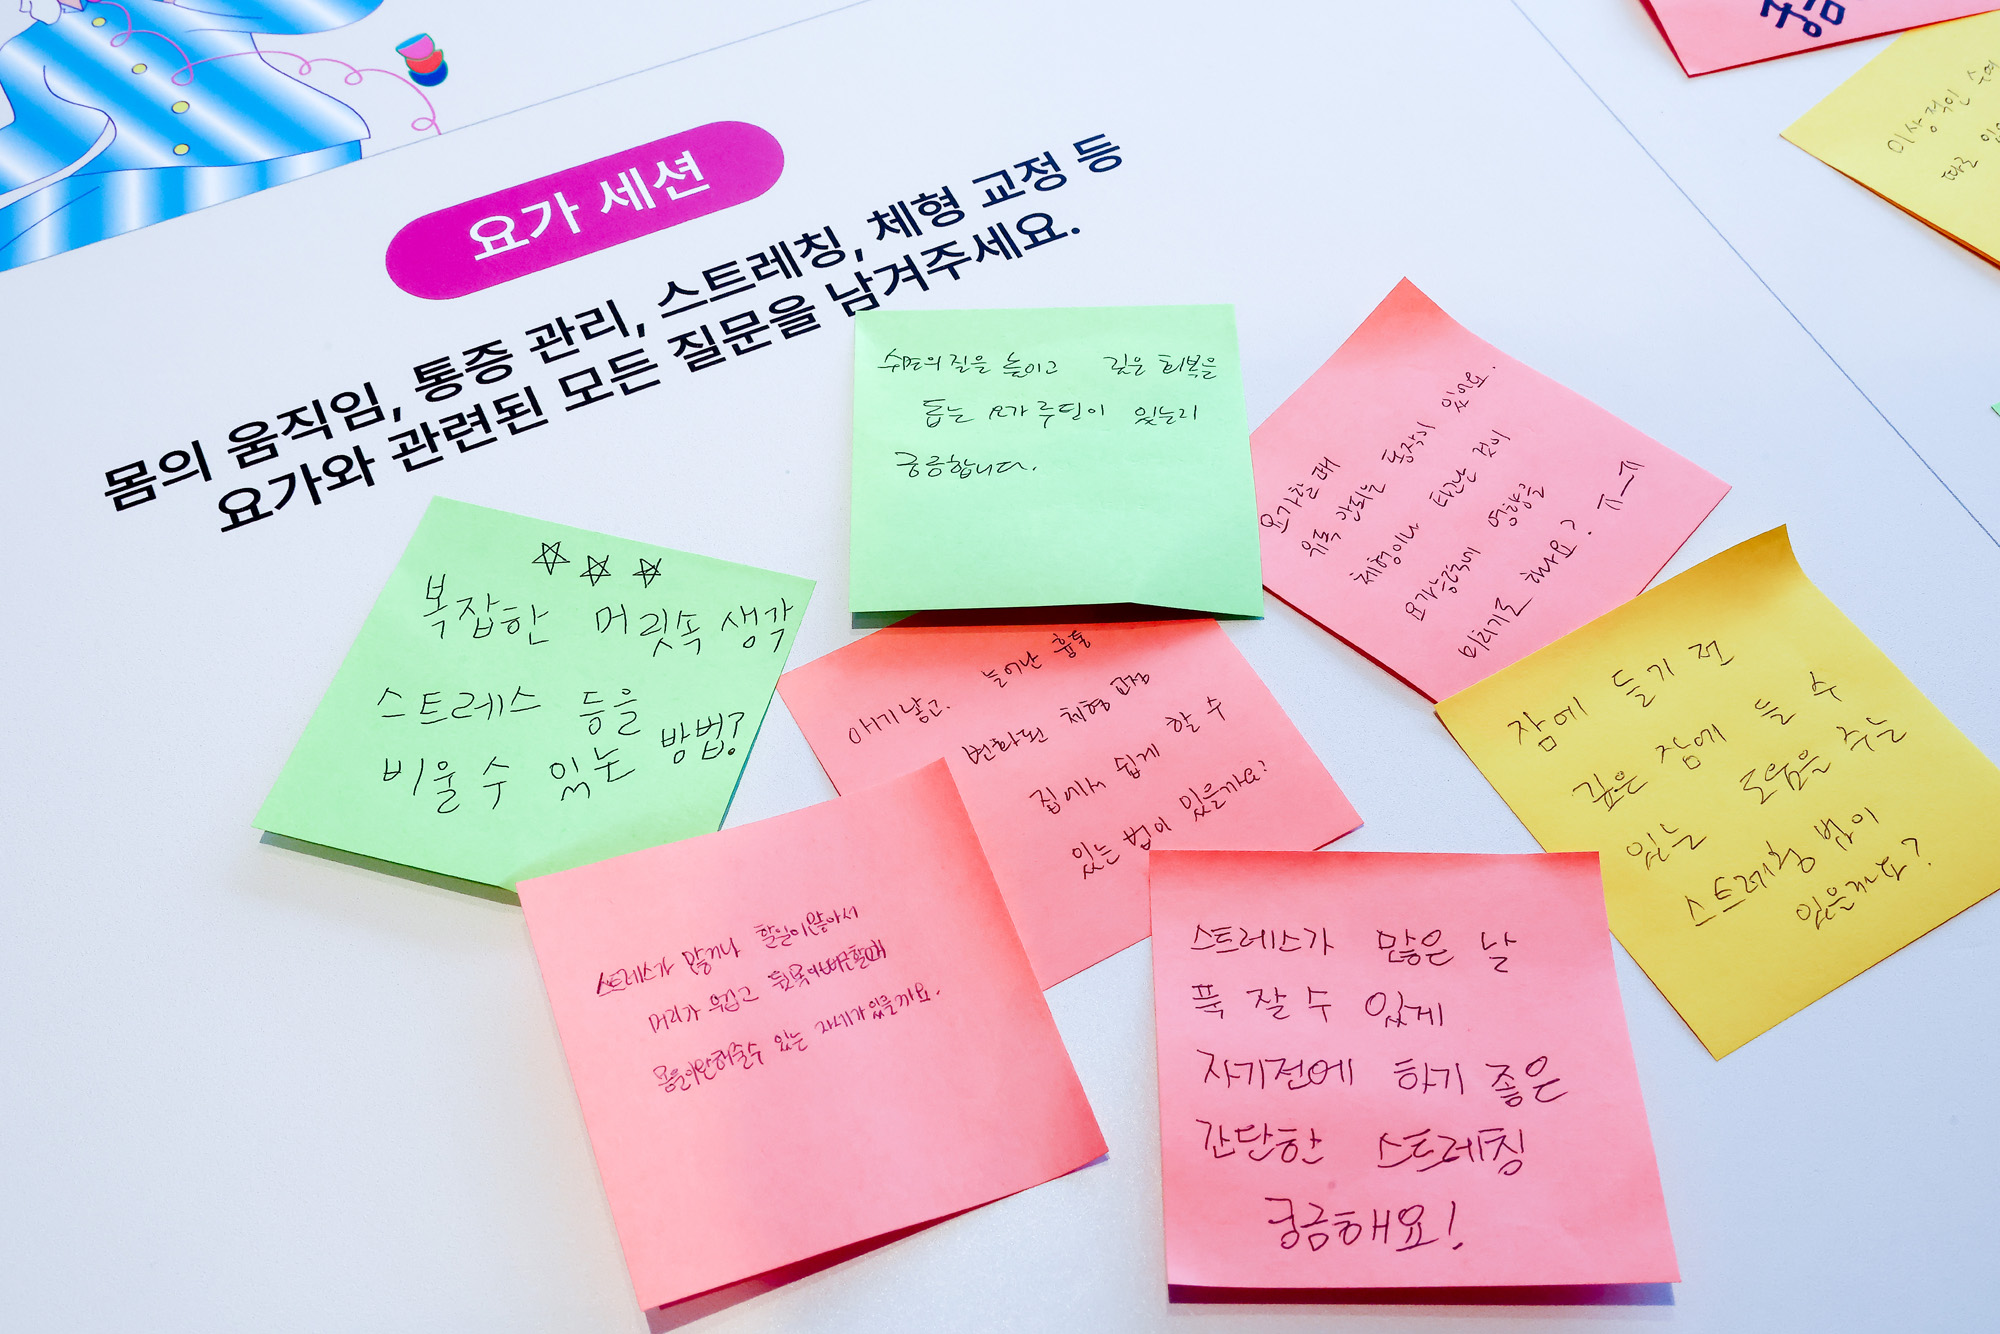 요가 세션
몸의 움직임, 통증 관리, 스트레칭, 체형 교정 등
요가와 관련된 모든 질문을 남겨주세요.
쉼의 질을 높이고 깊은 회복을
돕는 요가 루틴이 있는지
궁금합니다.
요가할 때
유독 안되는 동작이 있어요.
체형이나 타고난 것이
요가능력에 영향을
미치기도 하나요? ㅠㅡㅠ
복잡한 머릿속 생각
스트레스 등을
비울 수 있는 방법?
애기낳고. 늘어난 흉통
변화된 체형 교정
집에서 쉽게 할 수
있는 법이 있을까요?
잠에 들기 전
깊은 잠에 들 수
있는 도움을 주는
스트레칭 법이
있을까요?
스트레스가 많거나 할일이많아서
머리가 무겁고 뒷목이뻐근할때
몸을이완해줄수 있는 자세가있을까요.
스트레스가 많은 날
푹 잘 수 있게
자기전에 하기 좋은
간단한 스트레칭
궁금해요!
이상적인 수면
따로 있